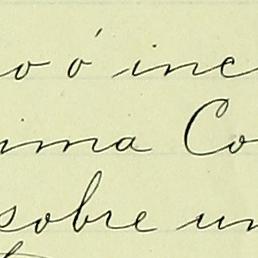 o ó inc
ima Co
sobre un